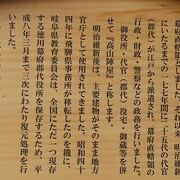 幕府直轄領としました。それ以来、明治維新
にいたるまでの一七七年間に二十五代の代官
（郡代）が江戸から派遣され、幕府直轄領の
行政・財政・警察などの政務を行いました。
御役所・代官（郡代）役宅・御蔵等を併
せて「高山陣屋」と称します。
明治維新後は、主要建物がそのまま地方
官庁として使用されてきました。昭和四十
四年に飛騨県事務所が移転したのを機に、
岐阜県教育委員会は、全国にただ一つ現存
する徳川幕府郡代役所を保存するため、平
成八年三月まで三次にわたり復元処理を行
いました。